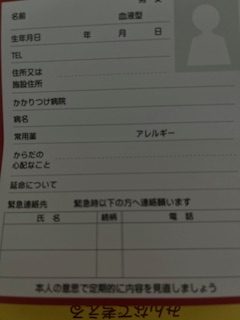 名前 血液型
生年月日 年 月 日
TEL
住所又は
施設住所
かかりつけ病院
病名
常用薬 アレルギー
からだの
心配なこと
延命について
緊急連絡先 緊急時以下の方へ連絡願います
氏名 続柄 電話
本人の意思で定期的に内容を見直しましょう
みんなで考える